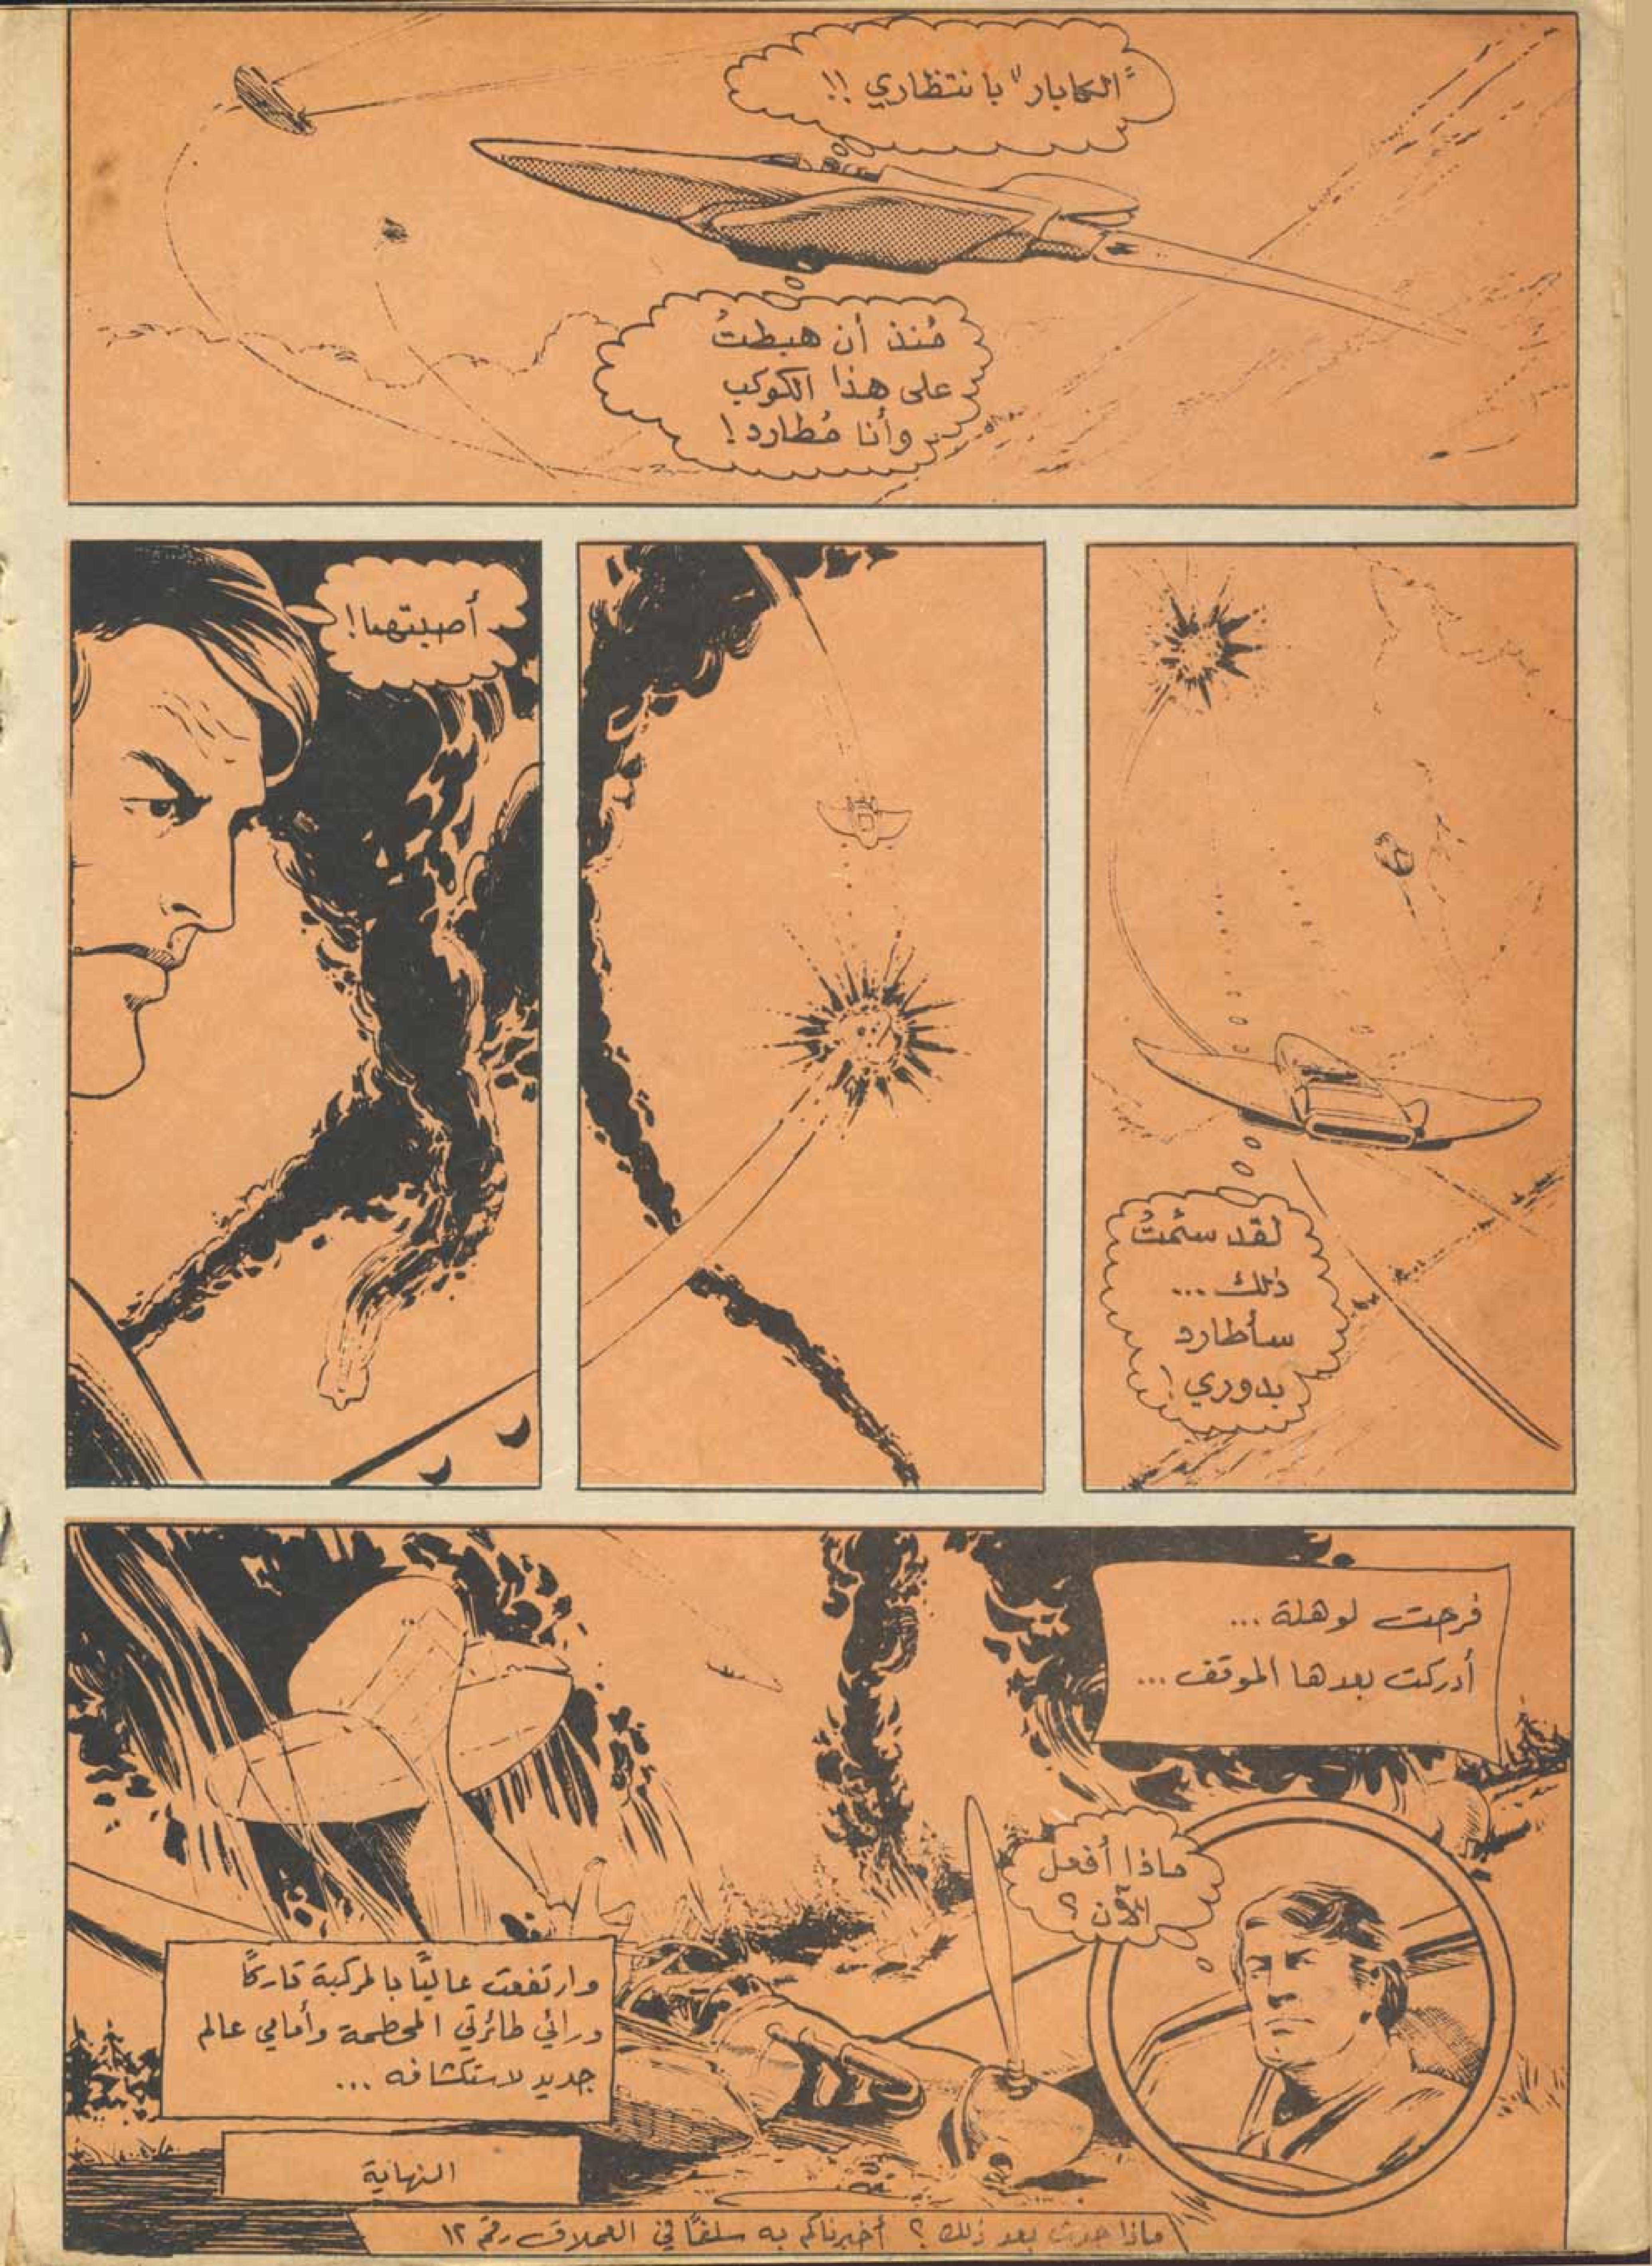 "الكابار" بانتظاري !!
مُنذ أن هبطتُ
على هذا الكوكب
وأنا مُطارد !
لقد سئمتُ
ذلك ...
سأطارد
بدوري !
أصبتها !
فرحت لوهلة ...
أدركت بعدها الموقف ...
ماذا أفعل
الآن ؟
وارتفعت عاليًا بالمركبة تاركًا
ورائي طائرتي المحطمة وأمامي عالم
جديد لاستكشافه ...
النهاية
ماذا حدث بعد ذلك ؟ أخبرناكم به سلفًا في العملاق رقم ١٢